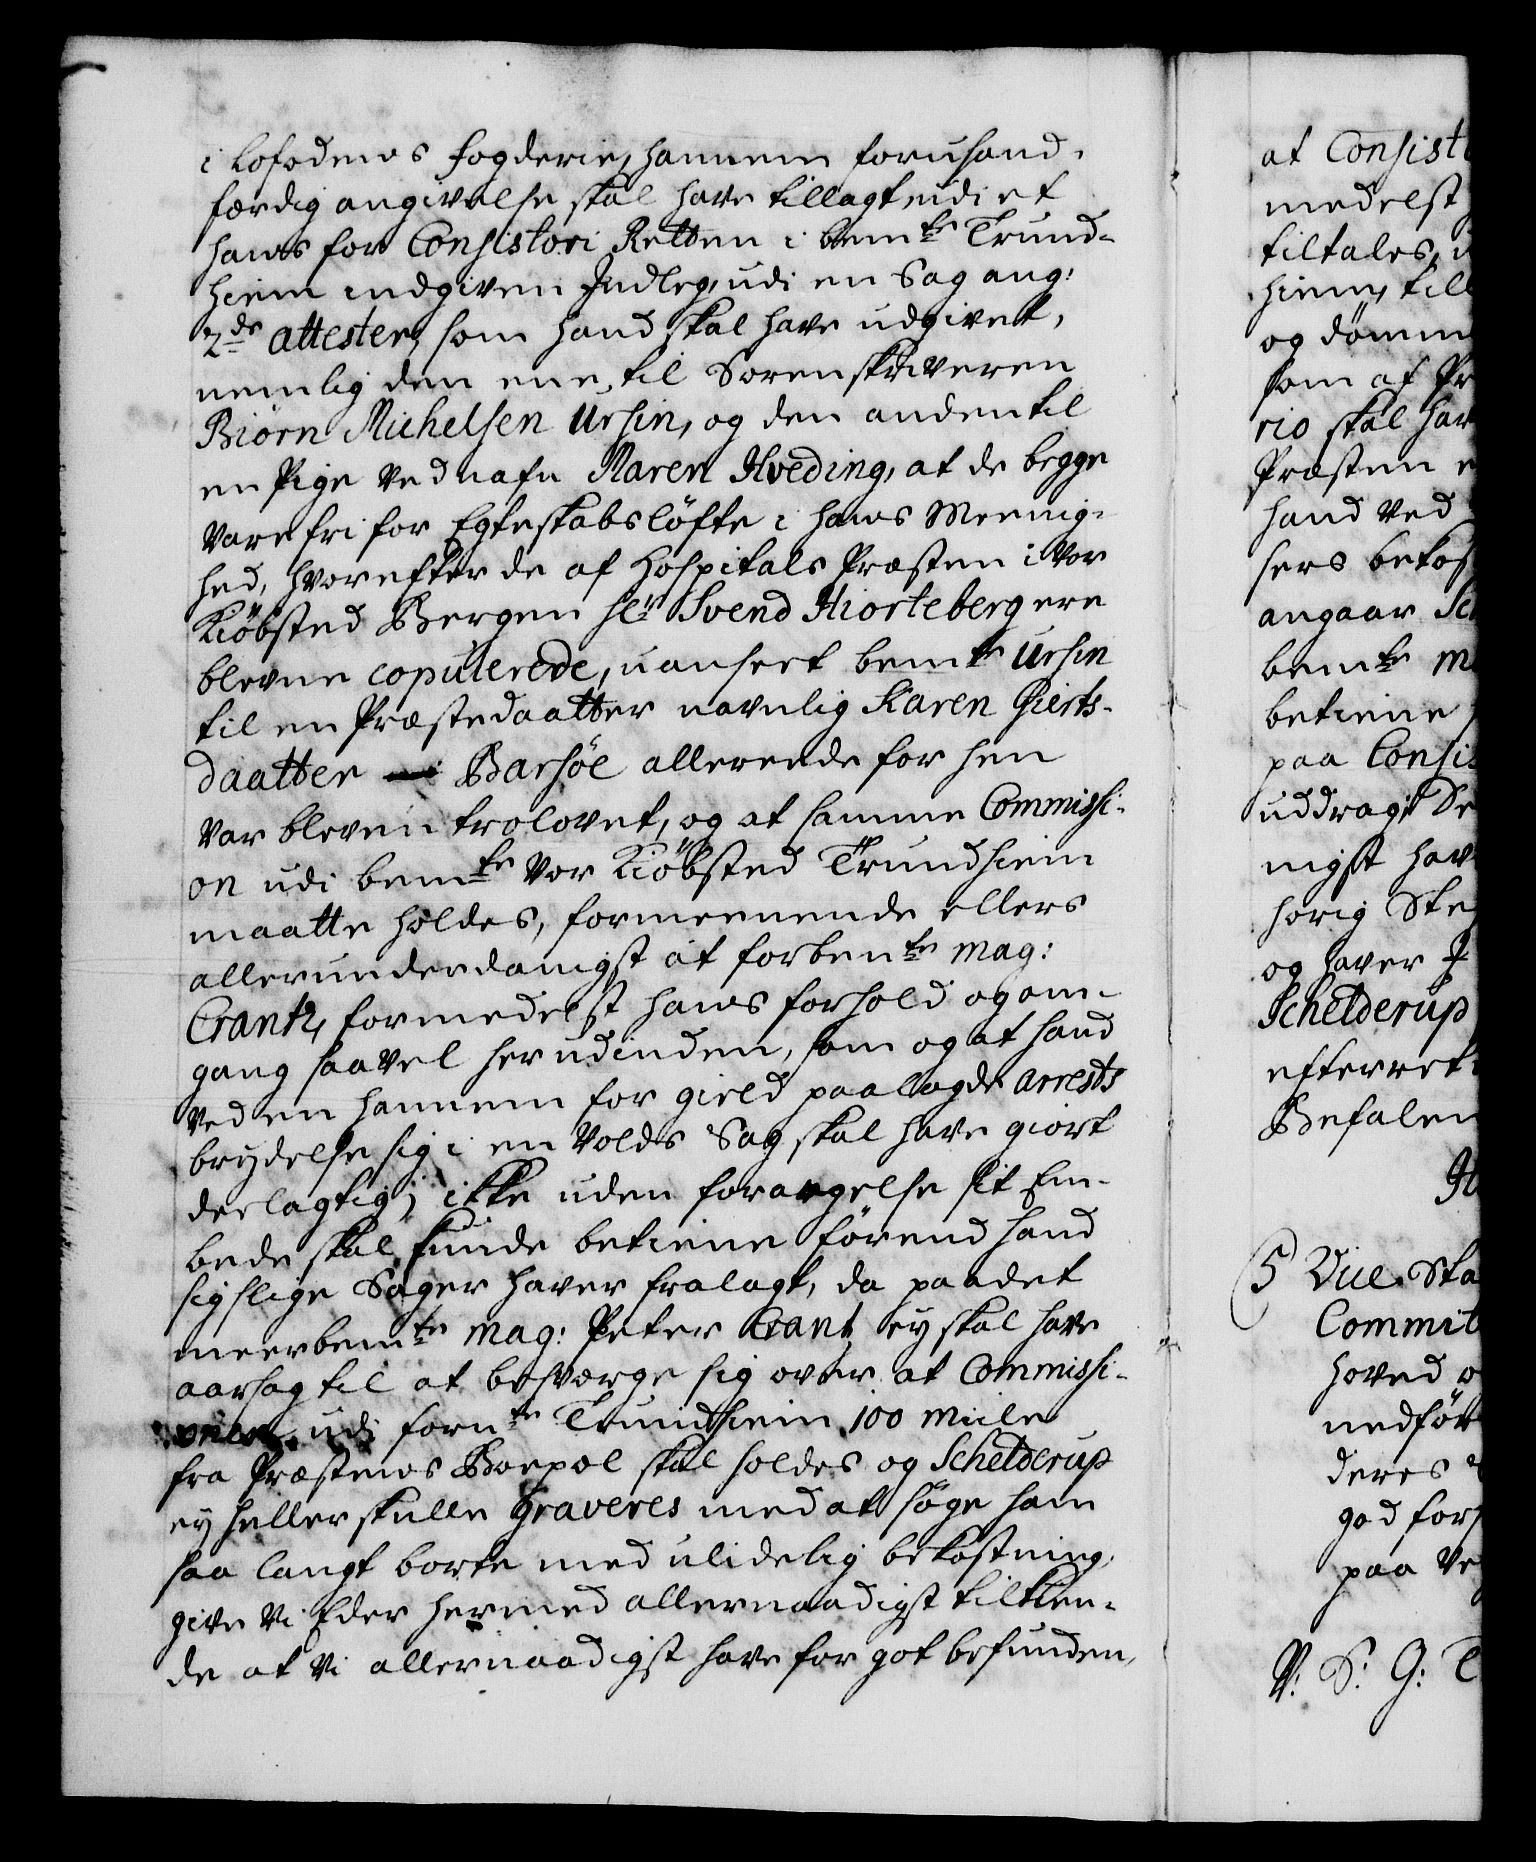 i Lofodens fogderie, hannem foruhand-
færdig angivelse skal have tillagt, udi et
hans for Consistori Retten i bemte Trund-
hiem indgiven Indleg, udi en Sag ang:
2de attester, som hand skal have udgivet,
nemlig den ene, til Sorenskriveren
Biörn Michelsen Ursin, og den anden til
en Pige ved nafn Maren Hveding, at de begge
vare fri for Egteskabsløfte i hans Meenig-
hed, hvorefter de af Hospitals Præsten i vor
Kiöbsted Bergen Hr Svend Hiorteberg ere
blevne copulerede, uanseet bemte Ursin
til en Præstedaatter navnlig Karen Gierts-
daatter Barhöe allereede for hen
var bleven trolovet, og at samme Commissi-
on udi bemte vor Kiöbsted Trundhiem
maatte holdes, formeenende ellers
allerunderdanigst at forbente mag:
Crantz, formedelst hans forhold og om-
gang saavel her udinden, som og at hand
ved en hannem for gield paalagde arrests
brydelse sig i en Volds Sag skal have giort
deelagtig, ikke uden forargelse sit Em-
bede skal kunde betiene förend hand
sig slige Sager haver fralagt, da paadet
meerbemte mag: Peter Crantz ey skal have
aarsag til at besværge sig over at Commissi-
onen udi fornte Trundhiem 100 Miile
fra Præstens Boepæl skal holdes og Schelderup
ey heller skulle graveres med at söge ham
saa langt borte med ulidelig bekostning,
give Vi Eder hermed allernaadigst tilkien-
de at Vi allernaadigst have for got befunden,
at Consist
medelst
tiltales,
hiem, till
og dömm
som af Pr
rio skal hav
Præsten
hand ved
sers bekos
angaar Sch
bemte M
betiene
paa Consis
uddragt De
nigst hav
hörig Ste
og haver
Schelderup
efterret
Befalen
5 Vice Sta
Commit
hoved o
nedför
deres
god for
paa Ve
V: S: G: T